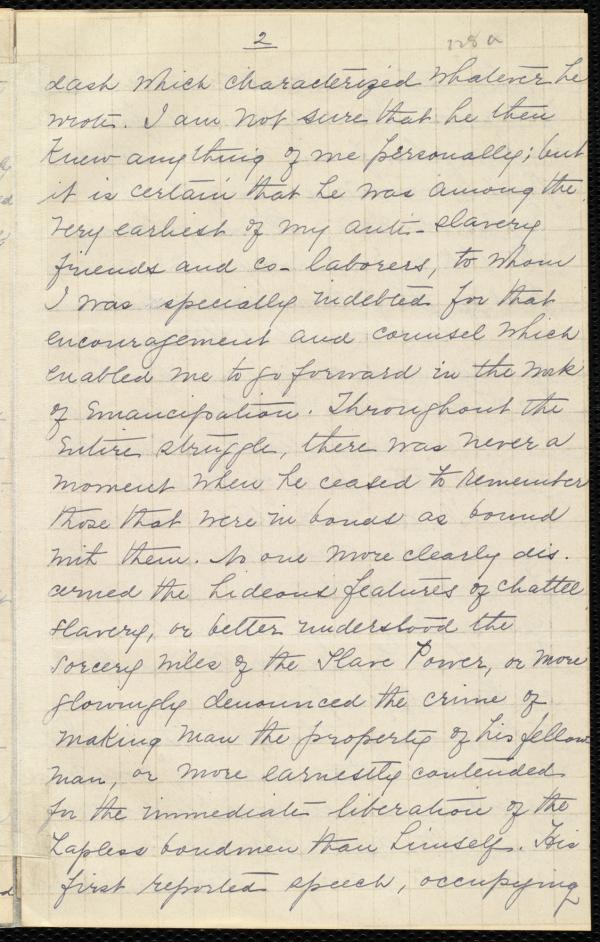 2
128a
dash which characterized whatever he
wrote. I am not sure that he then
knew anything of me personally; but
it is certain that he was among the
very earliest of my anti-slavery
friends and co-laborers, to whom
I was specially indebted for that
encouragement and counsel which
enabled me to go forward in the work
of Emancipation. Throughout the
Entire struggle, there was never a
moment when he ceased to remember
those that were in bonds as bound
with them. No one more clearly dis-
cerned the hideous features of chattel
slavery, or better understood the
sorcery wiles of the Slave Power, or more
glowingly denounced the crime of
making man the property of his fellow
man, or more earnestly contended
for the immediate liberation of the
hapless bondmen than himself. His
first reported speech, occupying